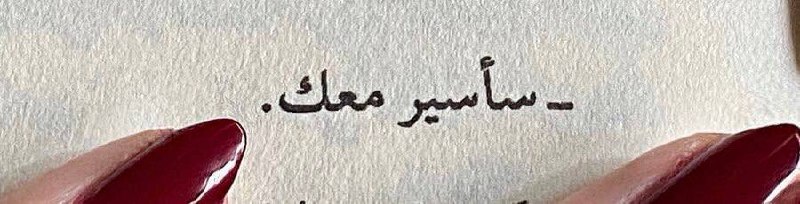 ـ سأسير معك.